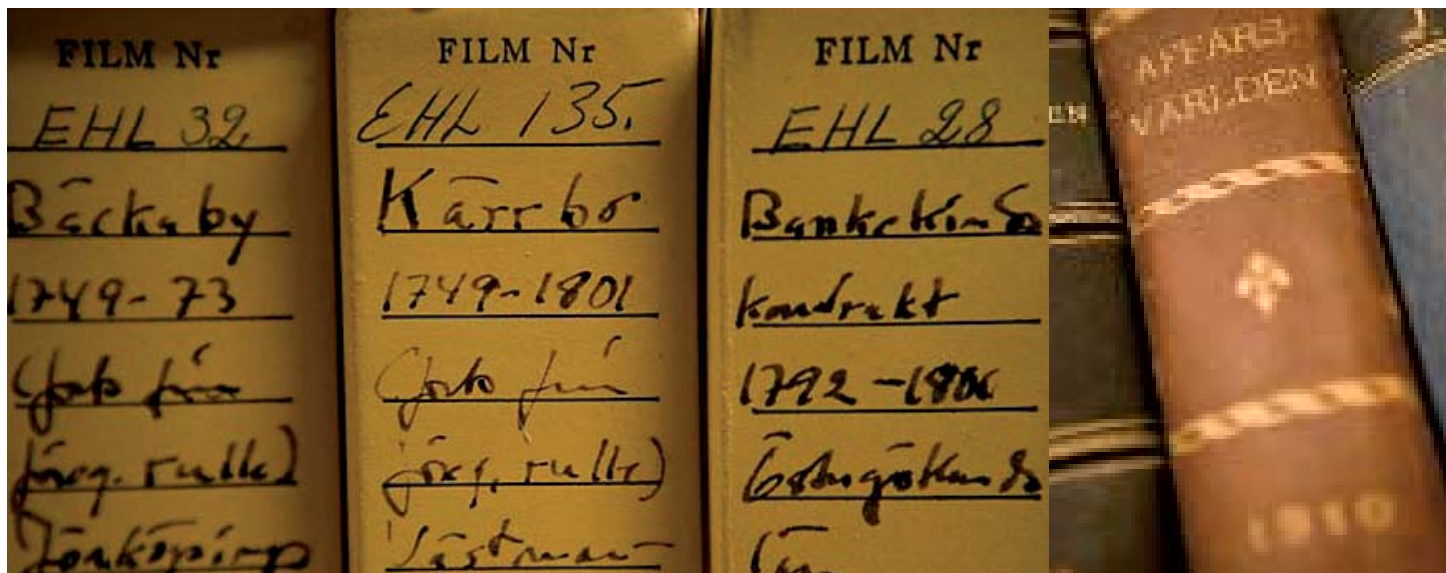 FILM Nr
EHL 32.
Bäckaby
1749-73
(forts från
föreg. rulle)
Jönköpings
FILM Nr
EHL 135.
Kärrbo
1749-1801
(forts från
föreg. rulle)
Västman-
FILM Nr
EHL 28
Bankekinds
kontrakt
1792-180
Östergötlands
län
EN
AFFÄRS-
VÄRLDEN
1910